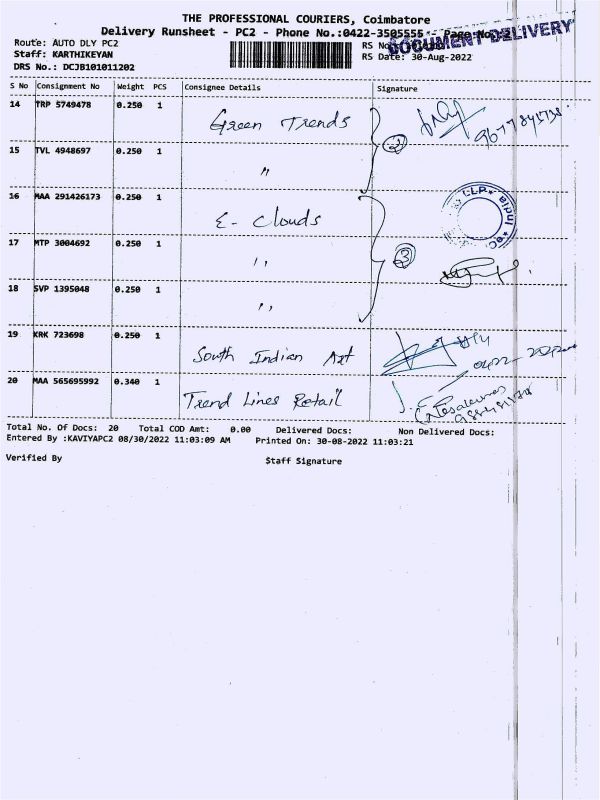 THE PROFESSIONAL COURIERS, Coimbatore
Delivery Runsheet - PC2 - Phone No.:0422-3505555 - Page No.
DOCUMENT DELIVERY
Route: AUTO DLY PC2
RS No
Staff: KARTHIKEYAN
RS Date: 30-Aug-2022
DRS No.: DCJB101011202
S No Consignment No Weight PCS Consignee Details Signature
14 TRP 5749478 0.250 1 Green Trends
15 TVL 4948697 0.250 1 "
2
16 MAA 291426173 0.250 1 E- Clouds
17 MTP 3004692 0.250 1 "
3
18 SVP 1395048 0.250 1 "
19 KRK 723698 0.250 1 South Indian Art
20 MAA 565695992 0.340 1 Trend Lines Retail
Total No. Of Docs: 20 Total COD Amt: 0.00 Delivered Docs: Non Delivered Docs:
Entered By :KAVIYAPC2 08/30/2022 11:03:09 AM Printed On: 30-08-2022 11:03:21
Verified By Staff Signature